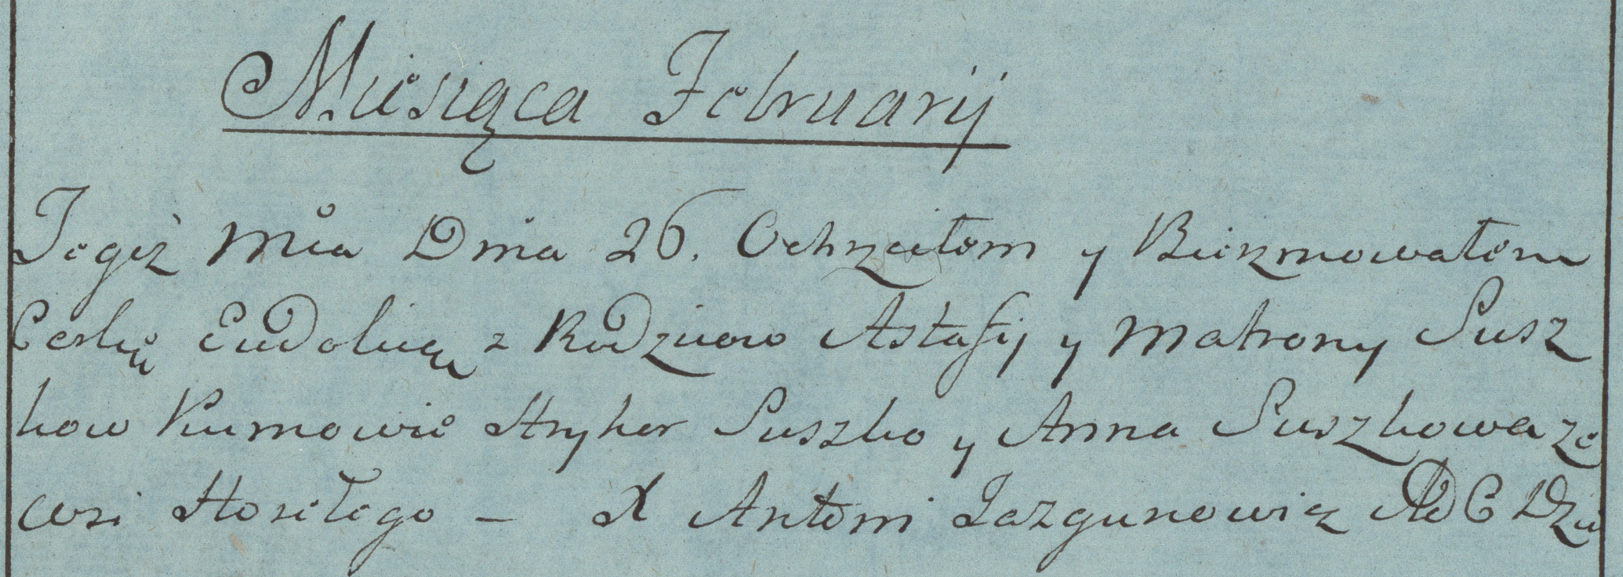 Miesiąca Februarij
Tegoż Mca Dnia 26. Ochrzciłem y Bierzmowałem
Corkę Eudokią z Rodzicow Astafij y Matrony Susz
kow Kumowie Hryhor Suszko y Anna Suszkowa ze
wsi Horełego – X Antoni Jazgunowicz